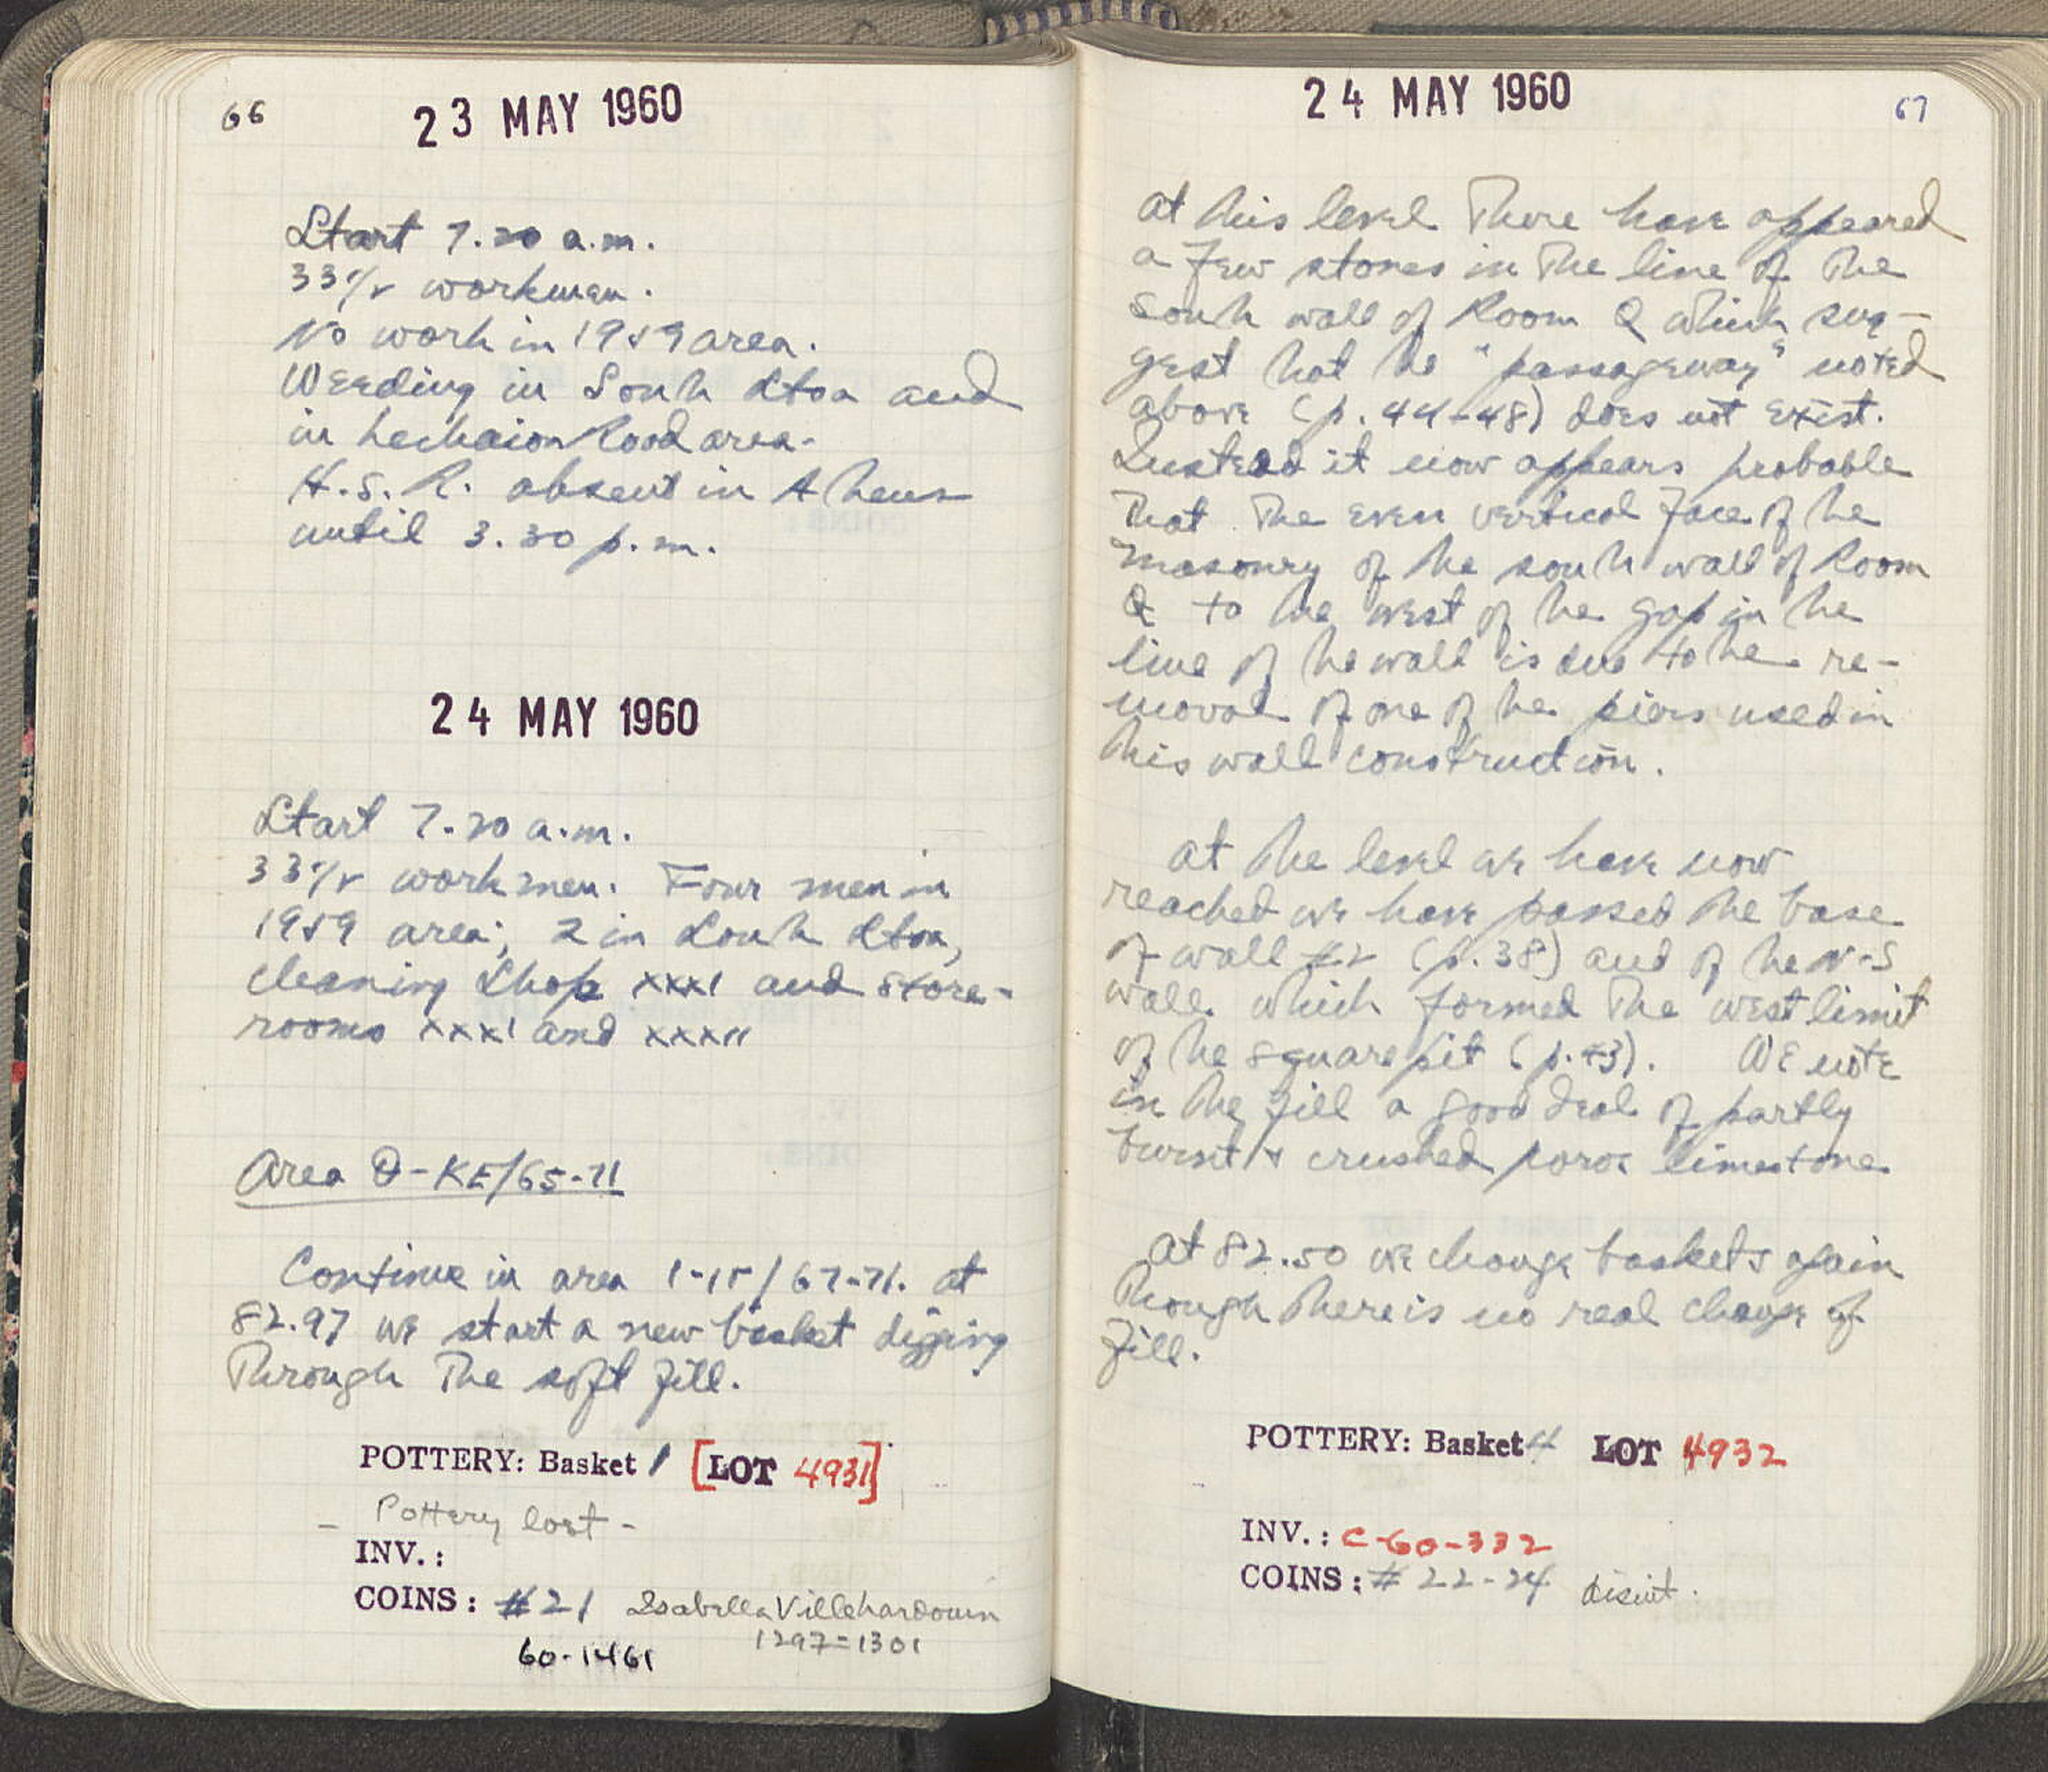 66
23 MAY 1960
Start 7.20 a.m.
33 1/2 workmen.
No work in 1959 area.
Weeding in South Stoa and
in Lechaion Road area.
H.S.R. absent in Athens
until 3.30 p.m.
24 MAY 1960
Start 7.20 a.m.
33 1/2 workmen. Four men in
1959 area; 2 in South Stoa,
cleaning Shop XXXI and store-
rooms XXXI and XXXII
Area Θ-KE/65-71
Continue in area I-IE/67-71. At
82.97 we start a new basket digging
through the soft fill.
POTTERY: Basket 1 [LOT 4931]
- Pottery lost -
INV.:
COINS: #21 Isabella Villehardouin
1297-1301
60-1461
24 MAY 1960
67
At this level there have appeared
a few stones in the line of the
south wall of Room Q which sug-
gest that the "passageway" noted
above (p. 44-48) does not exist.
Instead it now appears probable
that the even vertical face of the
masonry of the south wall of Room
Q to the west of the gap in the
line of the wall is due to the re-
moval of one of the piers used in
this wall construction.
At the level we have now
reached we have passed the base
of wall #2 (p. 38) and of the N-S
wall which formed the west limit
of the square pit (p. 43). We note
in the fill a good deal of partly
burnt & crushed poros limestone
At 82.50 we change baskets again
though there is no real change of
fill.
POTTERY: Basket 4 LOT 4932
INV.: C-60-332
COINS: #22-24 disint.